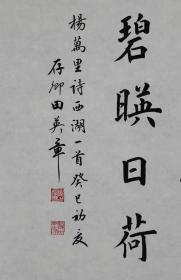 碧暎日荷
楊萬里詩西湖一首癸巳初夏
存卿田英章